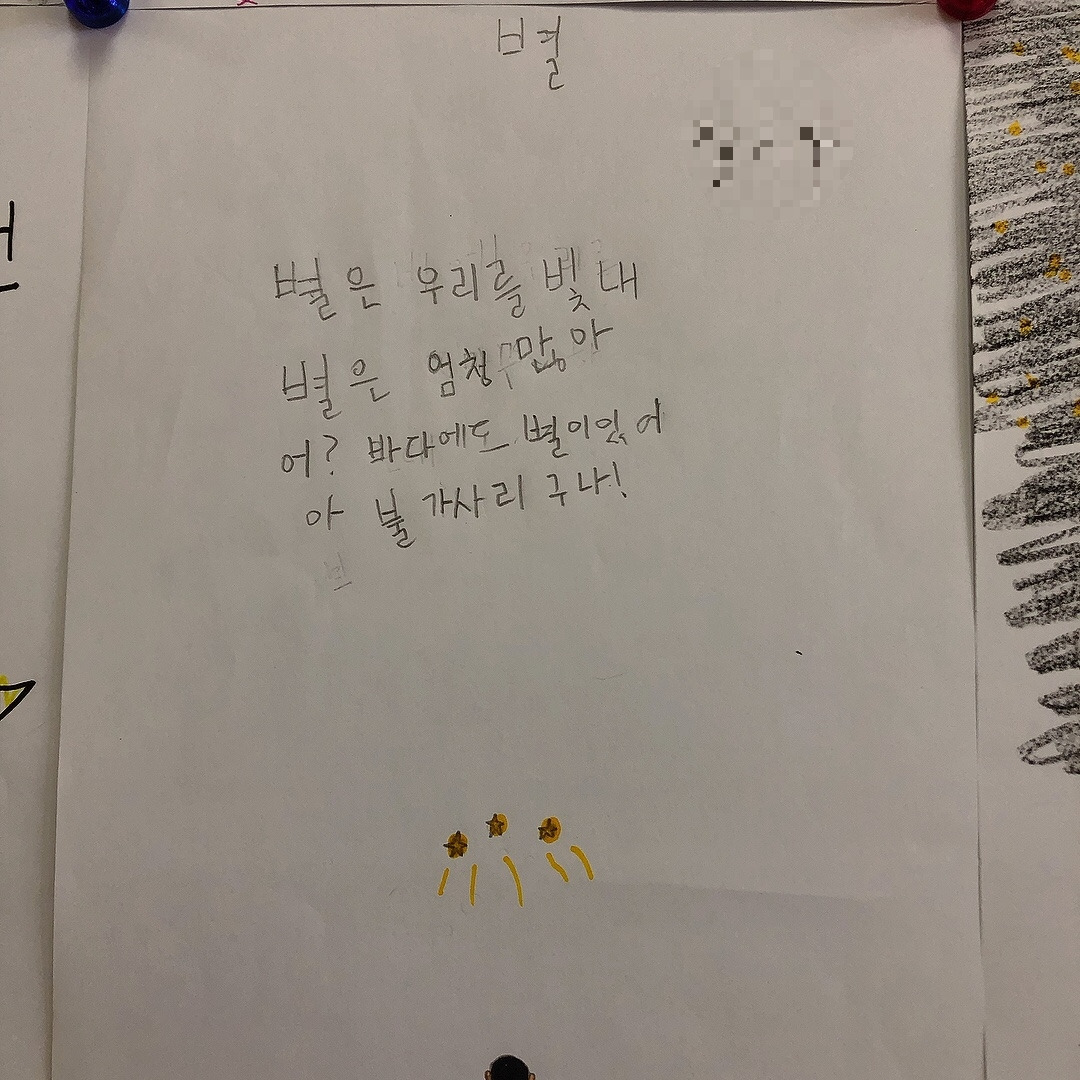 별
별은 우리를 벷내
별은 엄청 많아
어? 바다에도 별이있어
아 불가사리 구나!